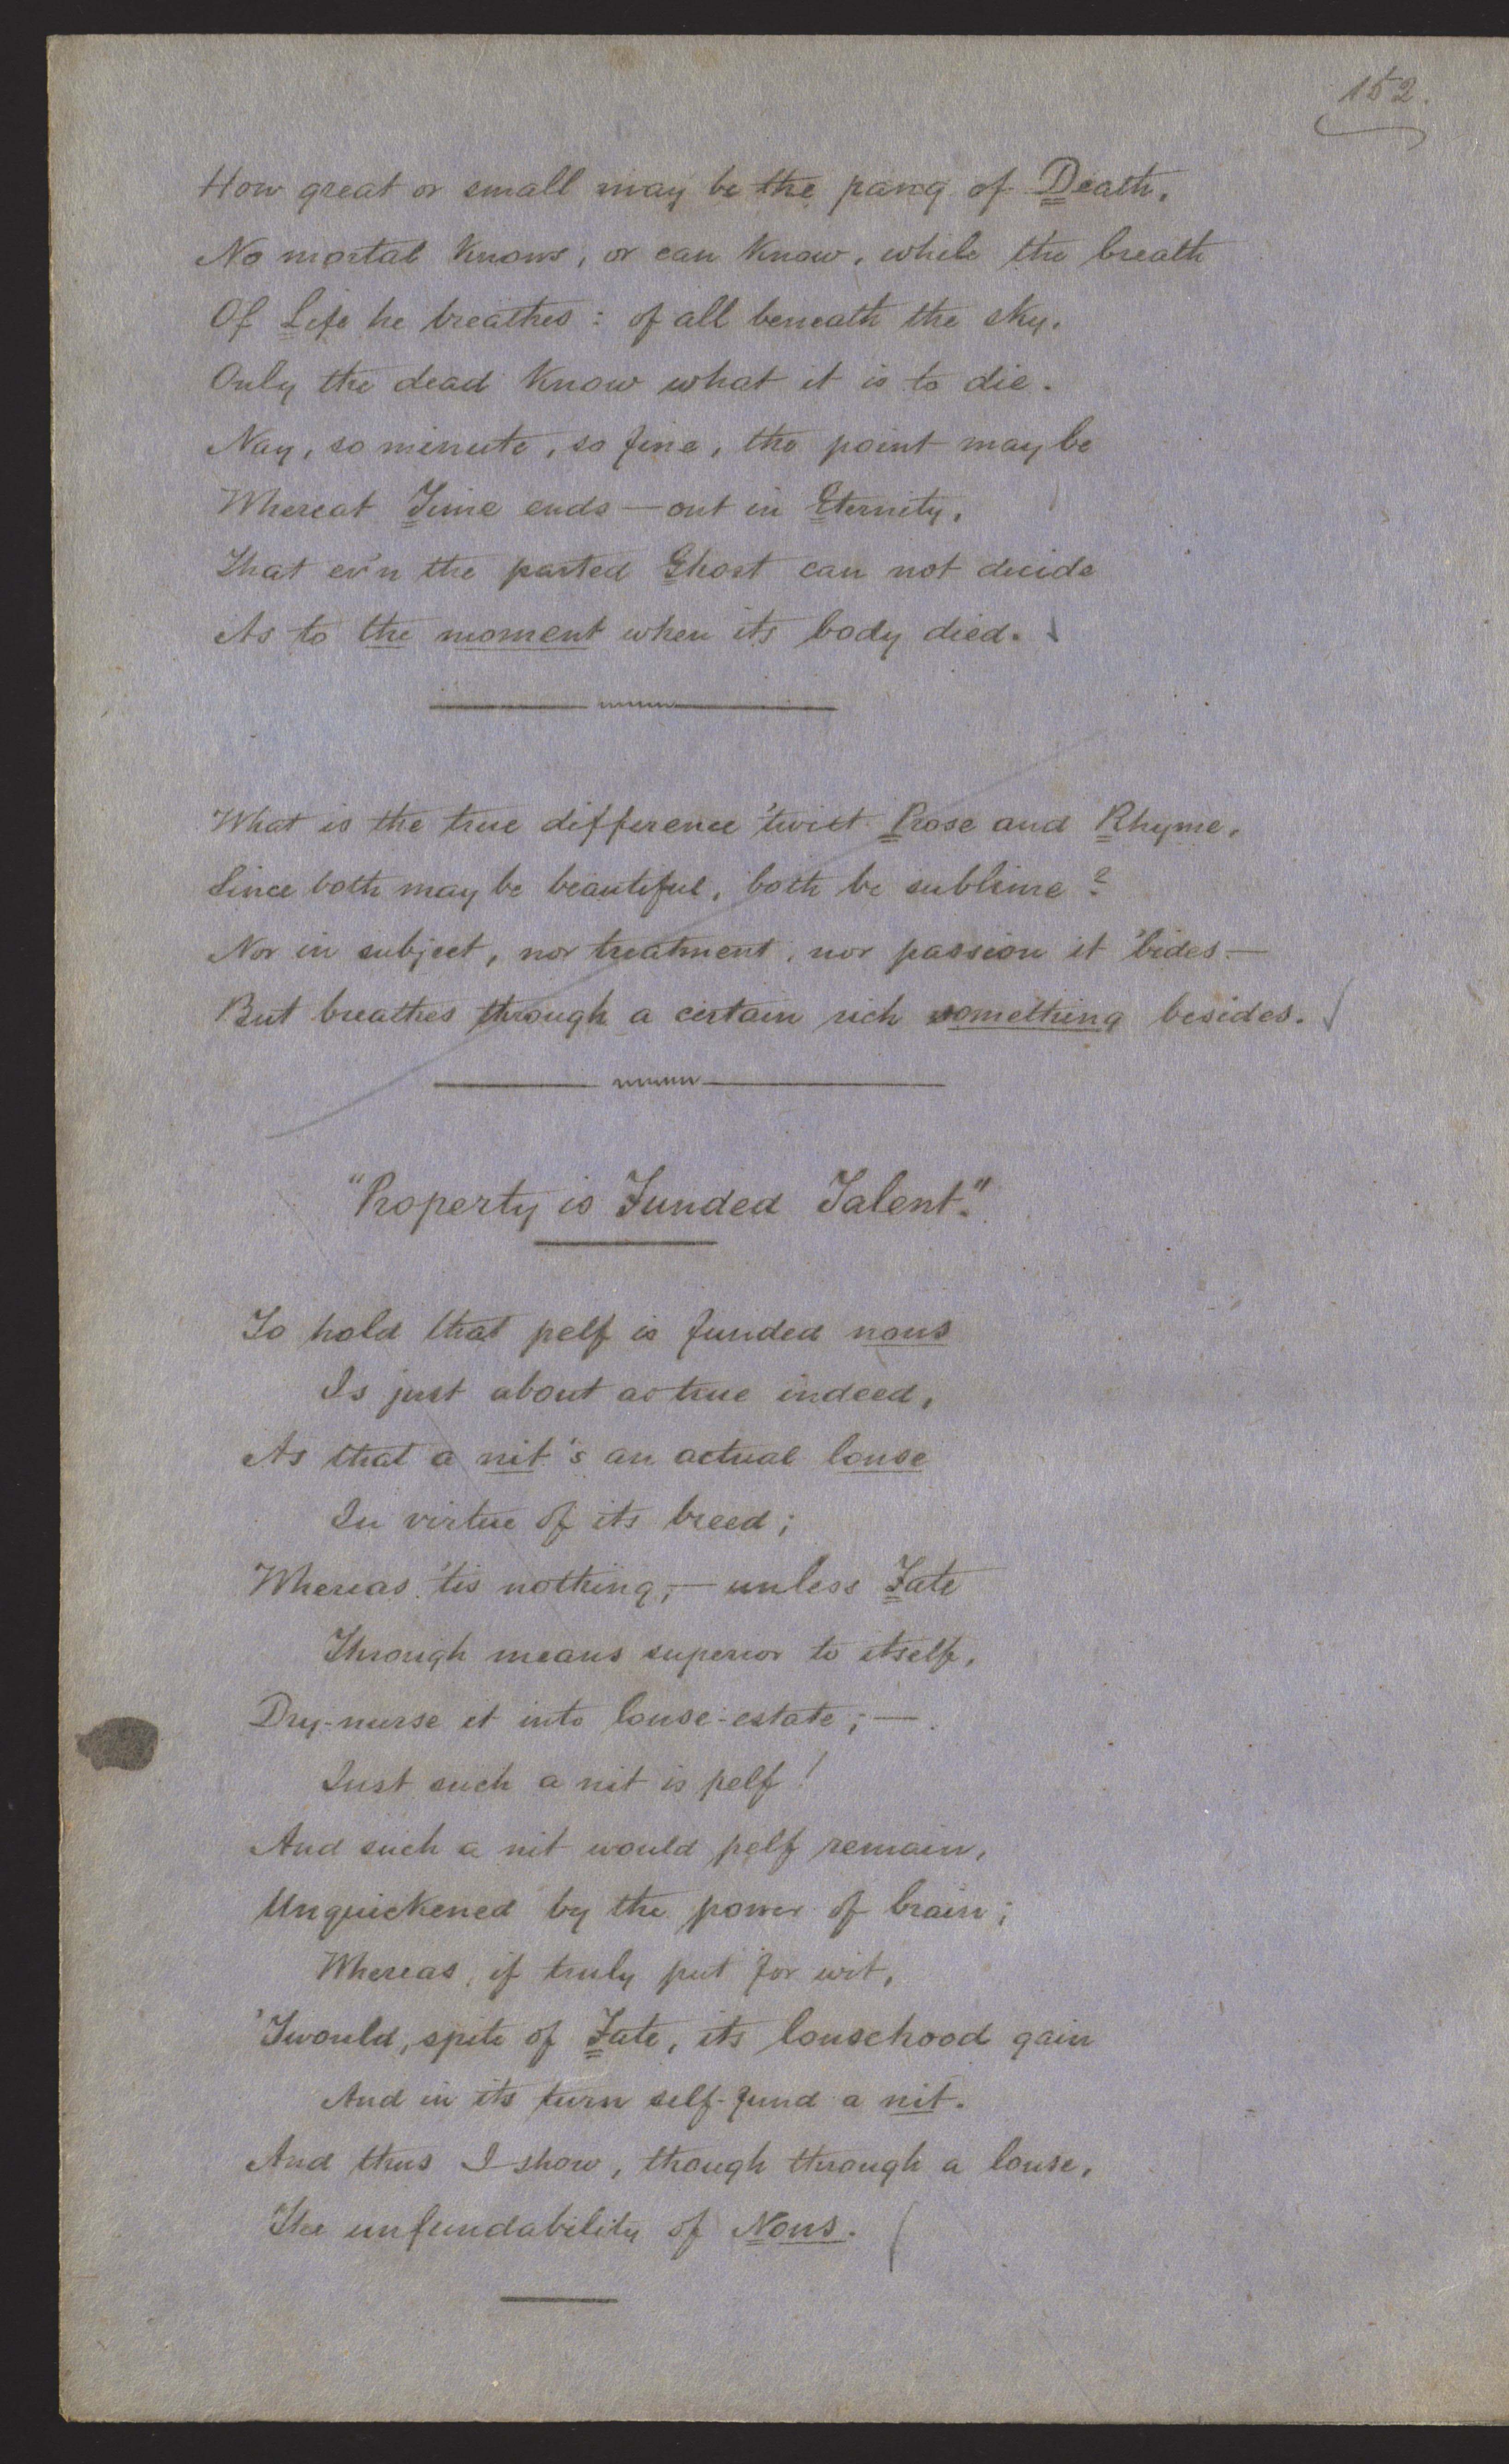 152.
How great or small may be the pang of Death,
No mortal knows, or can know, while the breath
Of Life he breathes: of all beneath the sky,
Only the dead know what it is to die.
Nay, so minute, so fine, the point may be
Whereat Time ends—out in Eternity,
That ev'n the parted Ghost can not decide
As to the moment when its body died.
What is the true difference 'twixt Prose and Rhyme,
Since both may be beautiful, both be sublime?
Nor in subject, nor treatment, nor passion it 'bides—
But breathes through a certain rich something besides.
"Property is Funded Talent."
To hold that pelf is funded nous
Is just about as true indeed,
As that a nit's an actual louse
In virtue of its breed;
Whereas 'tis nothing,—unless Fate
Through means superior to itself,
Dry-nurse it into louse-estate;—
Just such a nit is pelf!
And such a nit would pelf remain,
Unquickened by the power of brain;
Whereas, if truly put for wit,
'Twould, spite of Fate, its lousehood gain
And in its turn self-fund a nit.
And thus I show, though through a louse,
The unfundability of Nous.